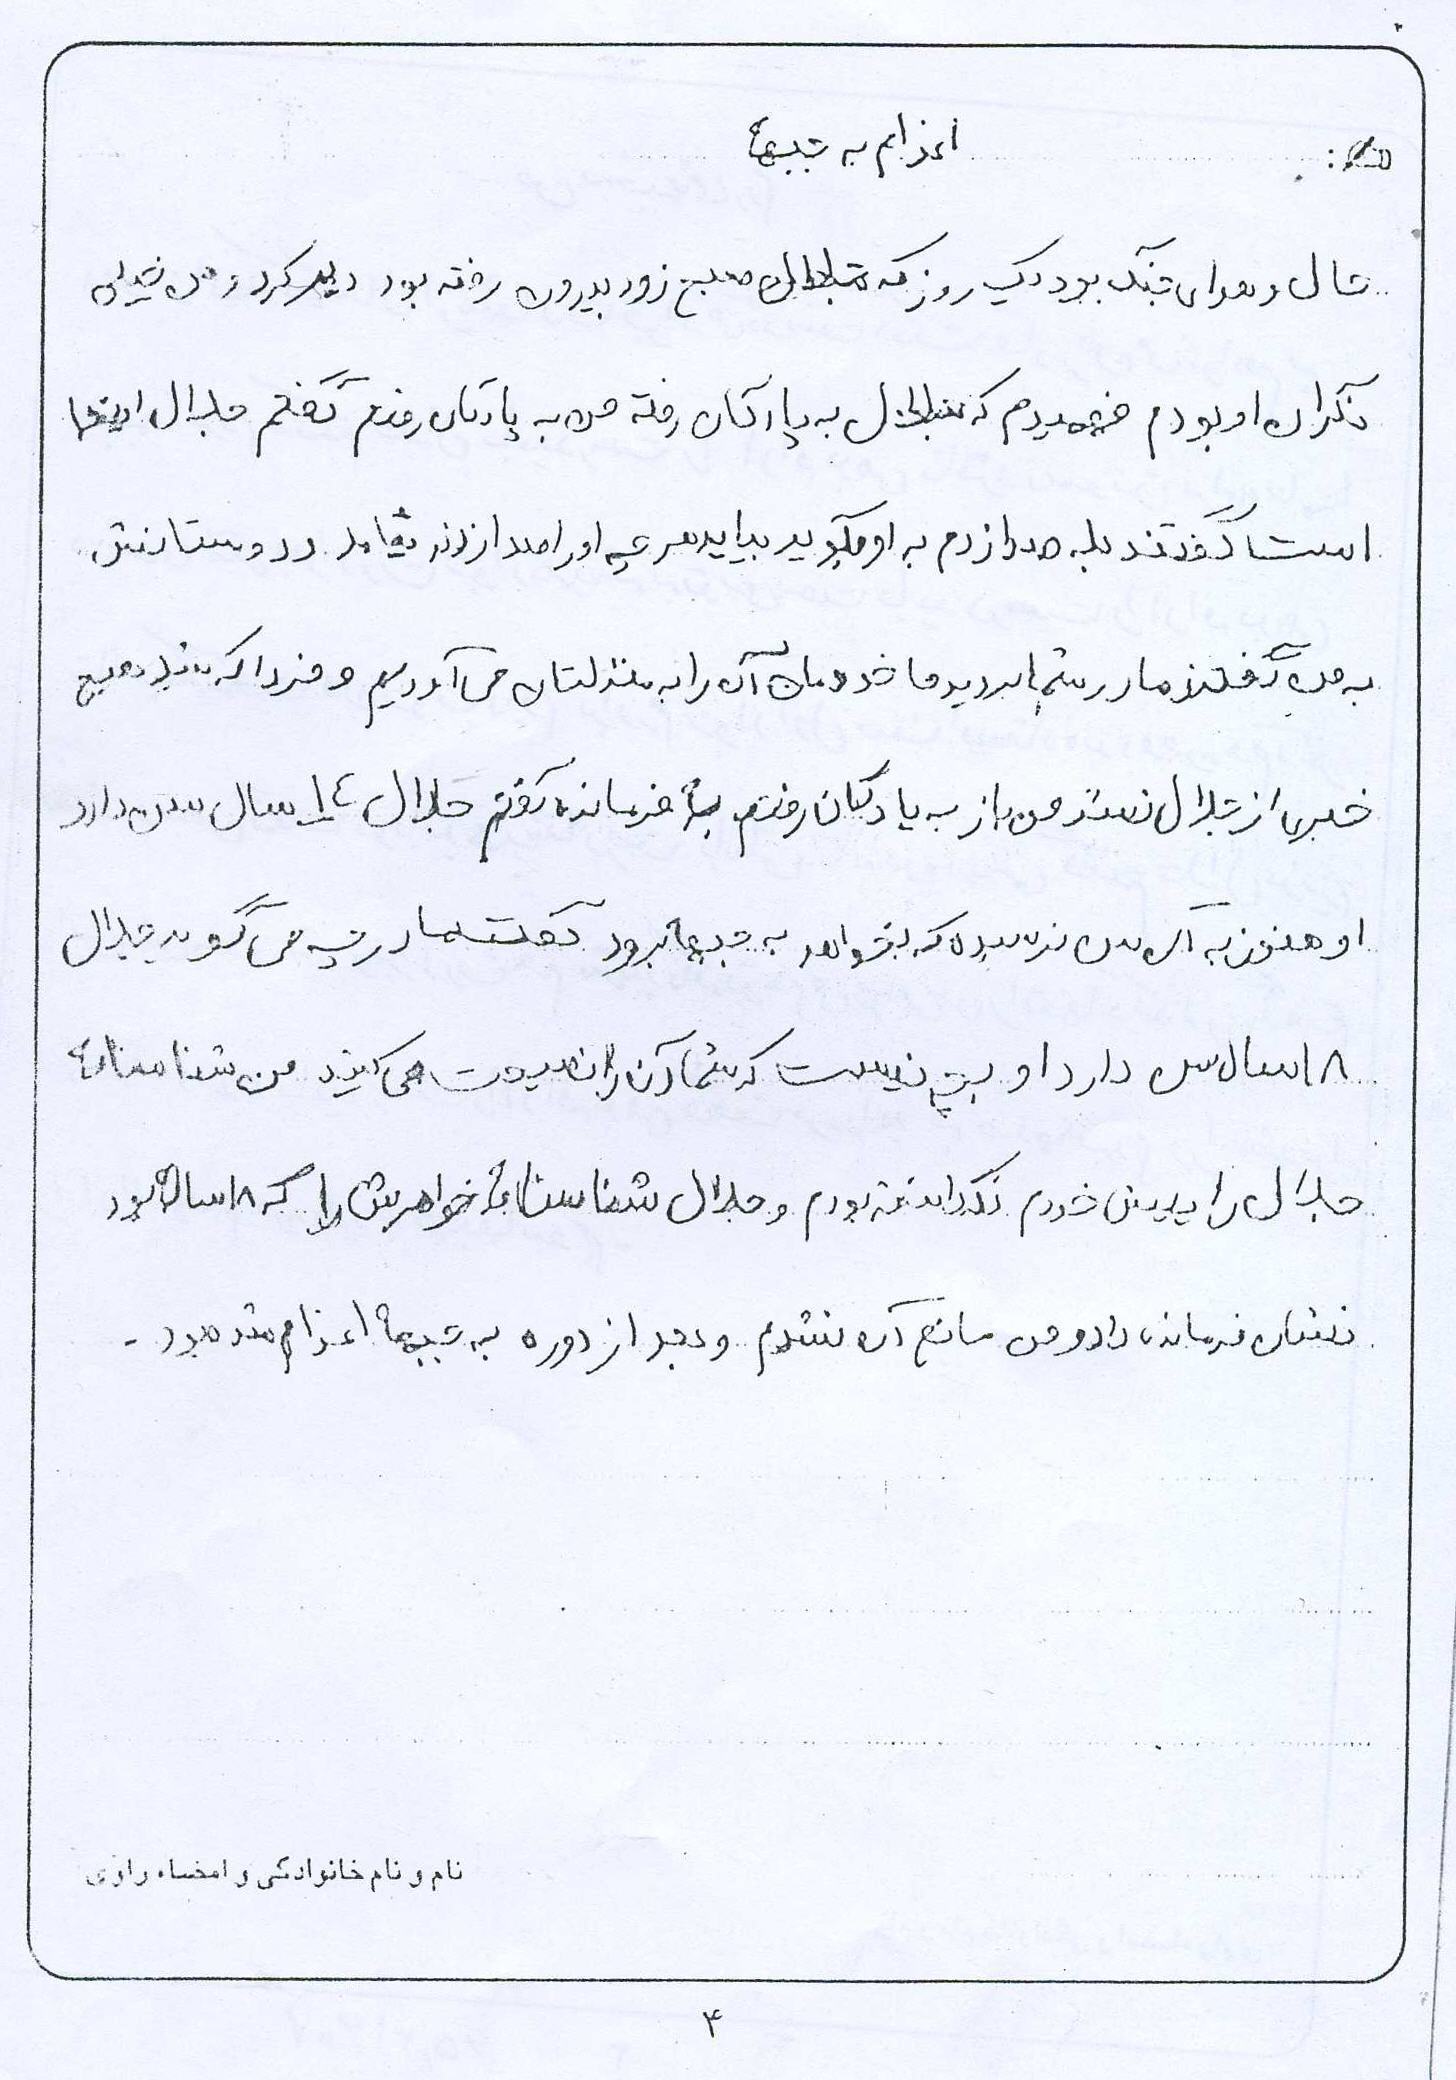 اعزام به جبهه
حال و هوای جنگ بود یک روز که جلال صبح زود بیرون رفته بود دیر کرد و من خیلی
نگران او بودم فهمیدم که جلال به پادگان رفته من به پادگان رفتم گفتم جلال اینجا
است گفتند بله صدا زدم به او بگویید بیاید هر چه او را صدا زدند نیامد دوستانش
به من گفتند مادر شما بروید ما خودمان آن را به منزلتان می آوریم و فردا که شد صبح
خبری از جلال نشد من باز به پادگان رفتم به فرمانده گفتم جلال ۱۴ سال سن دارد
او هنوز به آن سن نرسیده که بخواهد به جبهه برود گفت مادر چه می گوید جلال
۱۸ سال سن دارد او بچه نیست که شما آن را نصیحت می کنید من شناسنامه
جلال را پیش خودم نگه داشته بودم و جلال شناسنامه خواهرش را که ۱۸ ساله بود
نشان فرمانده داد و من مانع آن نشدم و بعد از دوره به جبهه اعزام شده بود -
نام و نام خانوادگی و امضاء راوی
۴